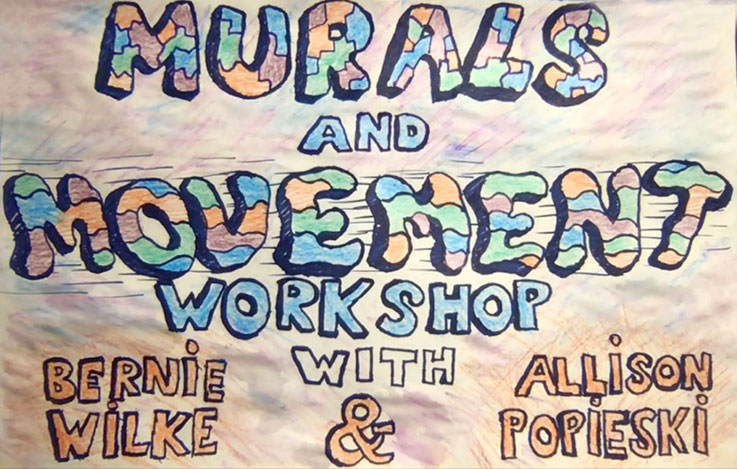 MURALS
AND
MOVEMENT
WORKSHOP
WITH
BERNiE WiLKE
&
ALLiSON POPiESKi